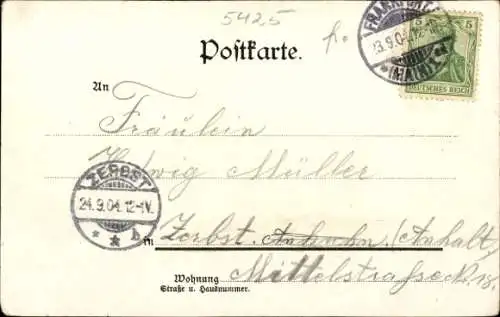 5425
FRANKFURT
23.9.04.
(MAIN)
5 5
DEUTSCHES REICH
Postkarte.
An
Fräulein
Hedwig Müller
ZERBST
24.9.04.12-1V.
* * b
in Zerbst. (Anhalt)
Mittelstraße
Wohnung
Straße u. Hausnummer.